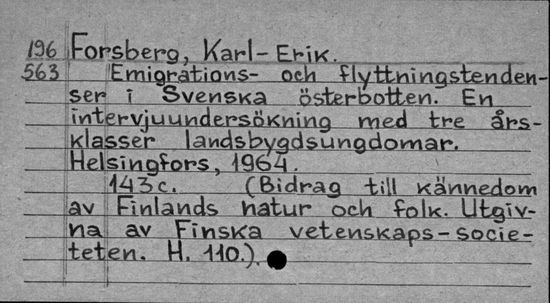 196 Forsberg, Karl-Erik.
563 Emigrations- och flyttningstenden-
ser i Svenska österbotten. En
intervjuundersökning med tre års-
klasser landsbygdsungdomar.
Helsingfors, 1964.
143c. (Bidrag till kännedom
av Finlands natur och folk. Utgiv-
na av Finska vetenskaps-socie-
teten. H. 110.).